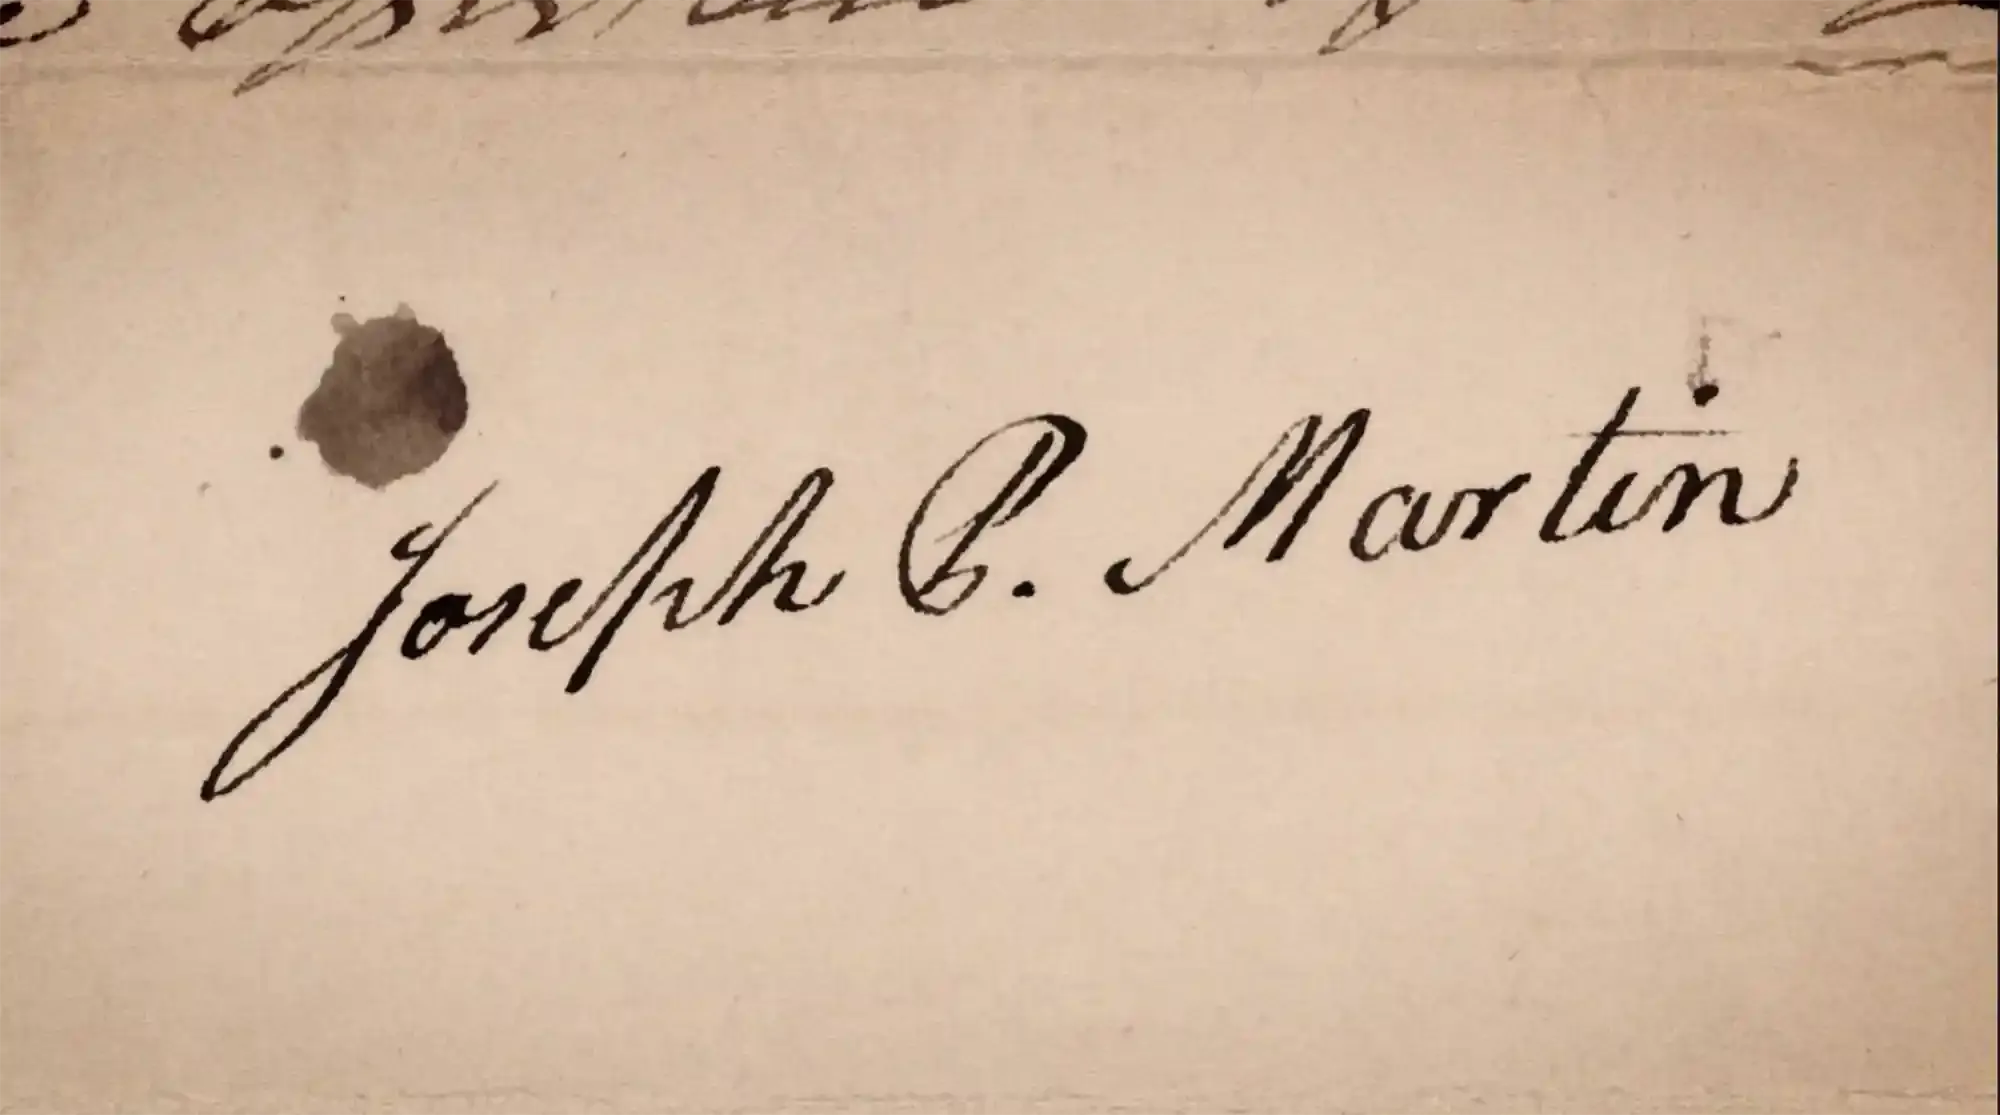 Joseph P. Martin